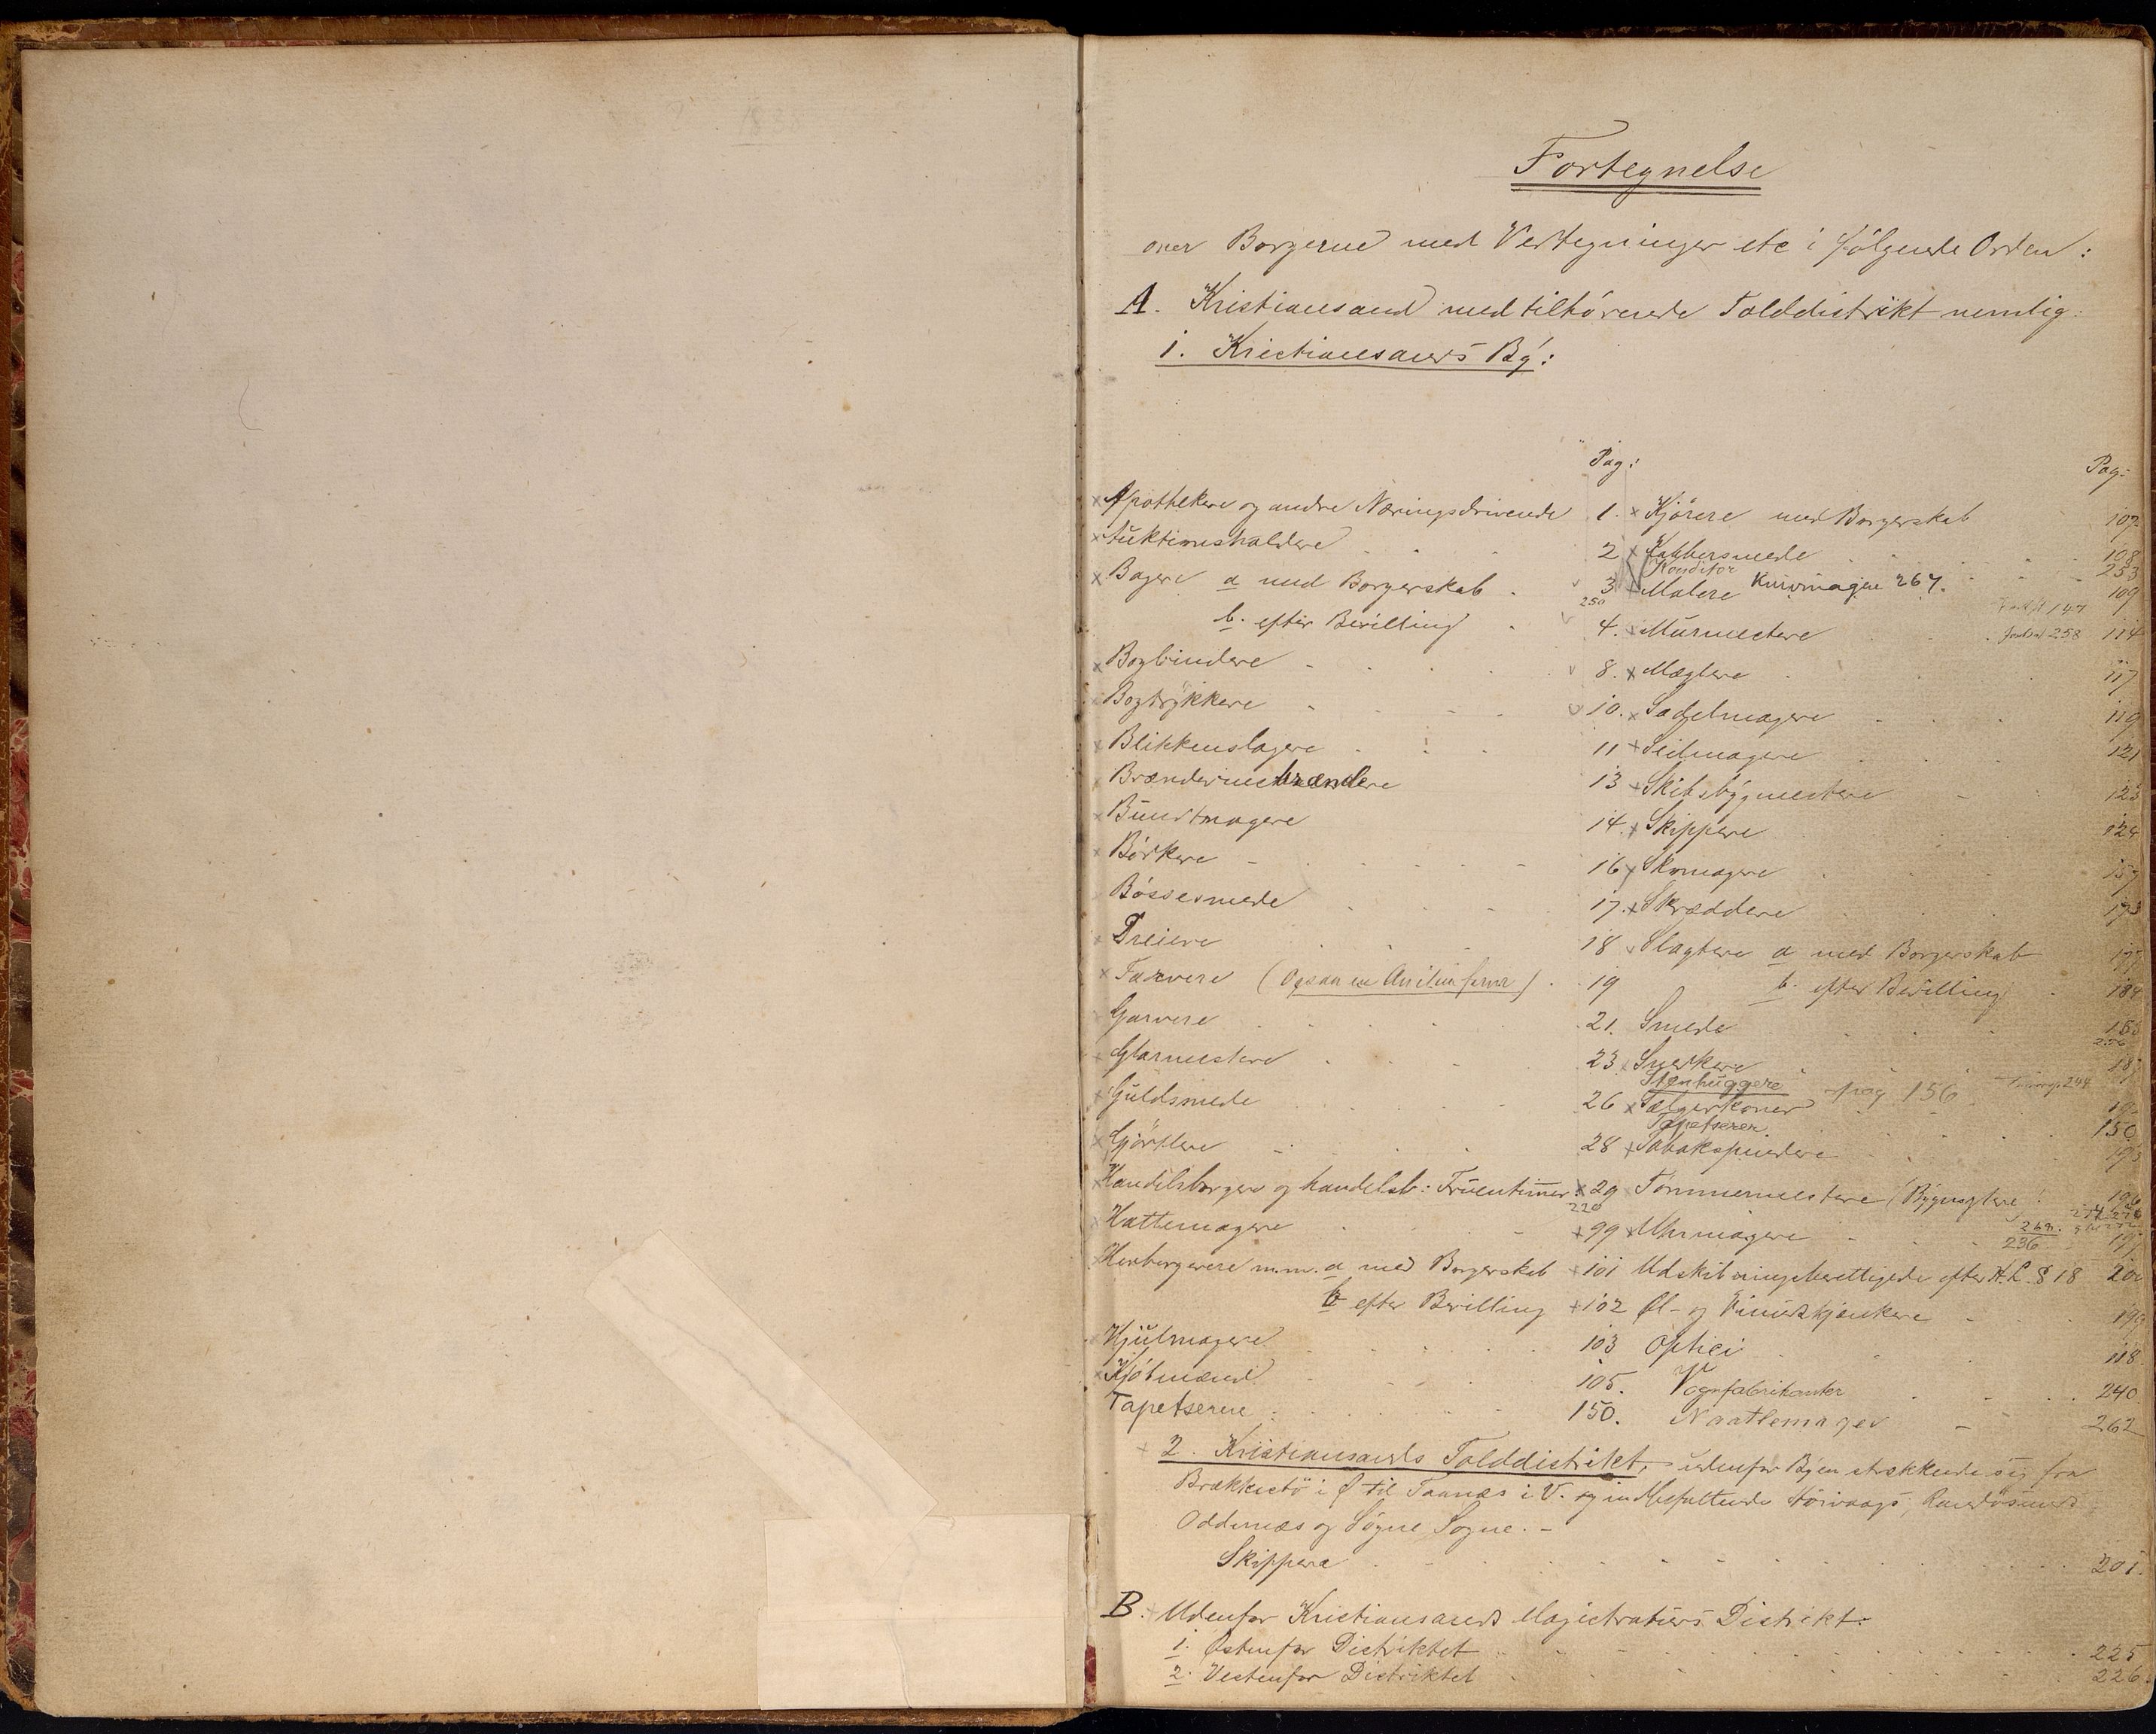 Fortegnelse
over Borgerne med Vedtegninger etc i følgende Orden:
A. Kristiansand med tilhørende Tolddistrikt nemlig:
1. Kristiansands By:
Pag:
Apothekere og andre Næringsdrivende 1.
Auktionsholdere 2
Bagere a med Borgerskab 3
250
b. efter Bevilling 4.
Bogbindere 8.
Bogtrykkere 10.
Blikkenslagere 11
Brændevinsbrændere 13
Bundtmagere 14.
Bødkere 16
Bössesmede 17.
Dreiere 18
Farvere (Ogsaa en Anilin farver) 19
Garvere 21.
Glarmestere 23
Guldsmede 26
Gjørtlere 28
Handelsborgere og handelsb: Fruentimmer 29
220
Hattemagere 99
Herbergerere m.m. a med Borgerskab 101
b efter Bevilling 102
Hjulmagere 103
Kjøbmænd 105.
Tapetserere 150.
Pag:
Kjörere med Borgerskab 107
Kobbersmede 108
Konditor 253
Malere Knivmagere 267. 109
147
Murmestere 258 114
Mæglere 117
Sadelmagere 119
Seilmagere 121
Skibsbygmestere 123
Skippere 124
Skomagere 157
Skræddere 173
Slagtere a med Borgerskab 177
b. efter Bevilling 184
Smede 185
256
Snedkere 187
Stenhuggere pag 156 244
Sælgerkoner
Tapetserer 150
Tobakspindere 195
Tømmermestere (Bygmestere) 196
Uhrmagere 236
Udskibningsberettigede efter H.L. § 18 200
Øl- og Viinudskjænkere
Optici 118.
Vognfabrikanter 240
Naatlemager 262
2. Kristiansands Tolddistrikt, udenfor Byen strækkende sig fra
Brækkestø i Ø til Taanæs i V. og indbefattende Høivaags, Randøsunds
Oddernæs og Søgne Sogne.-
Skippere 201.
B. Udenfor Kristiansands Magistrats Distrikt.
1. Østenfor Distriktet 225
2. Vestenfor Distriktet 226.